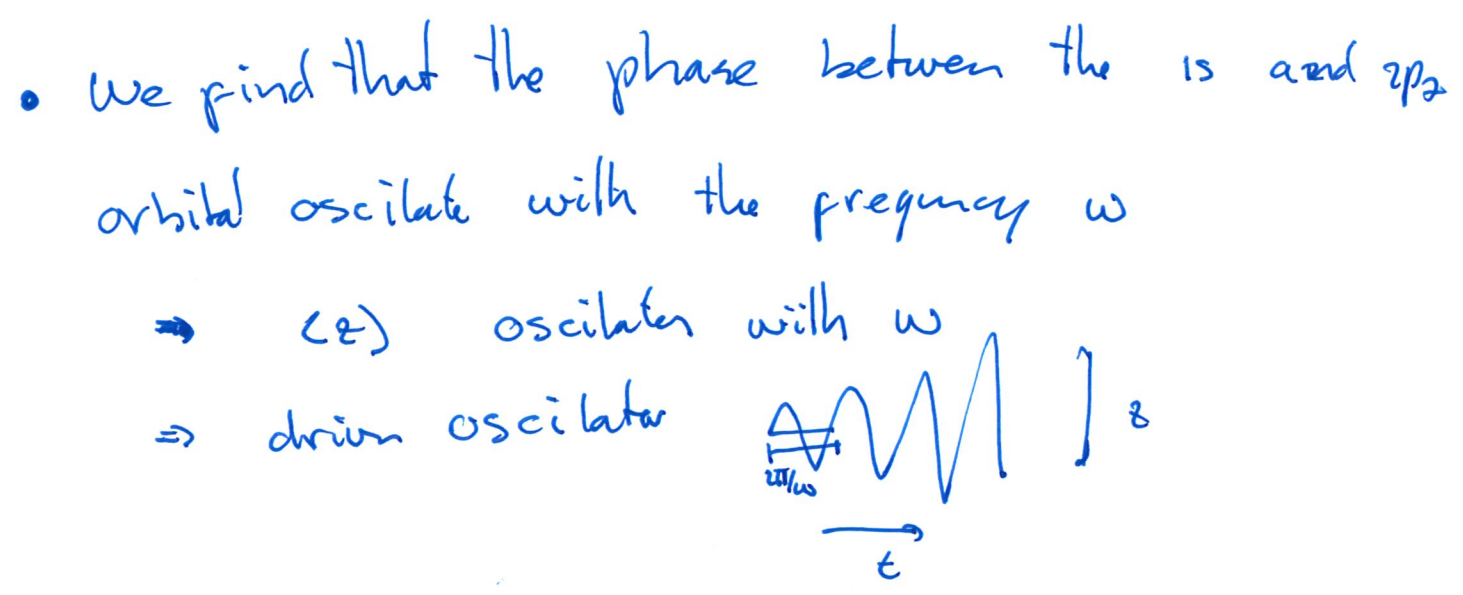 • We find that the phase between the 1s and 2p_z
orbital oscilate with the frequency ω
⇒ ⟨z⟩ oscilates with ω
⇒ driven oscilator
z
2π/ω
t